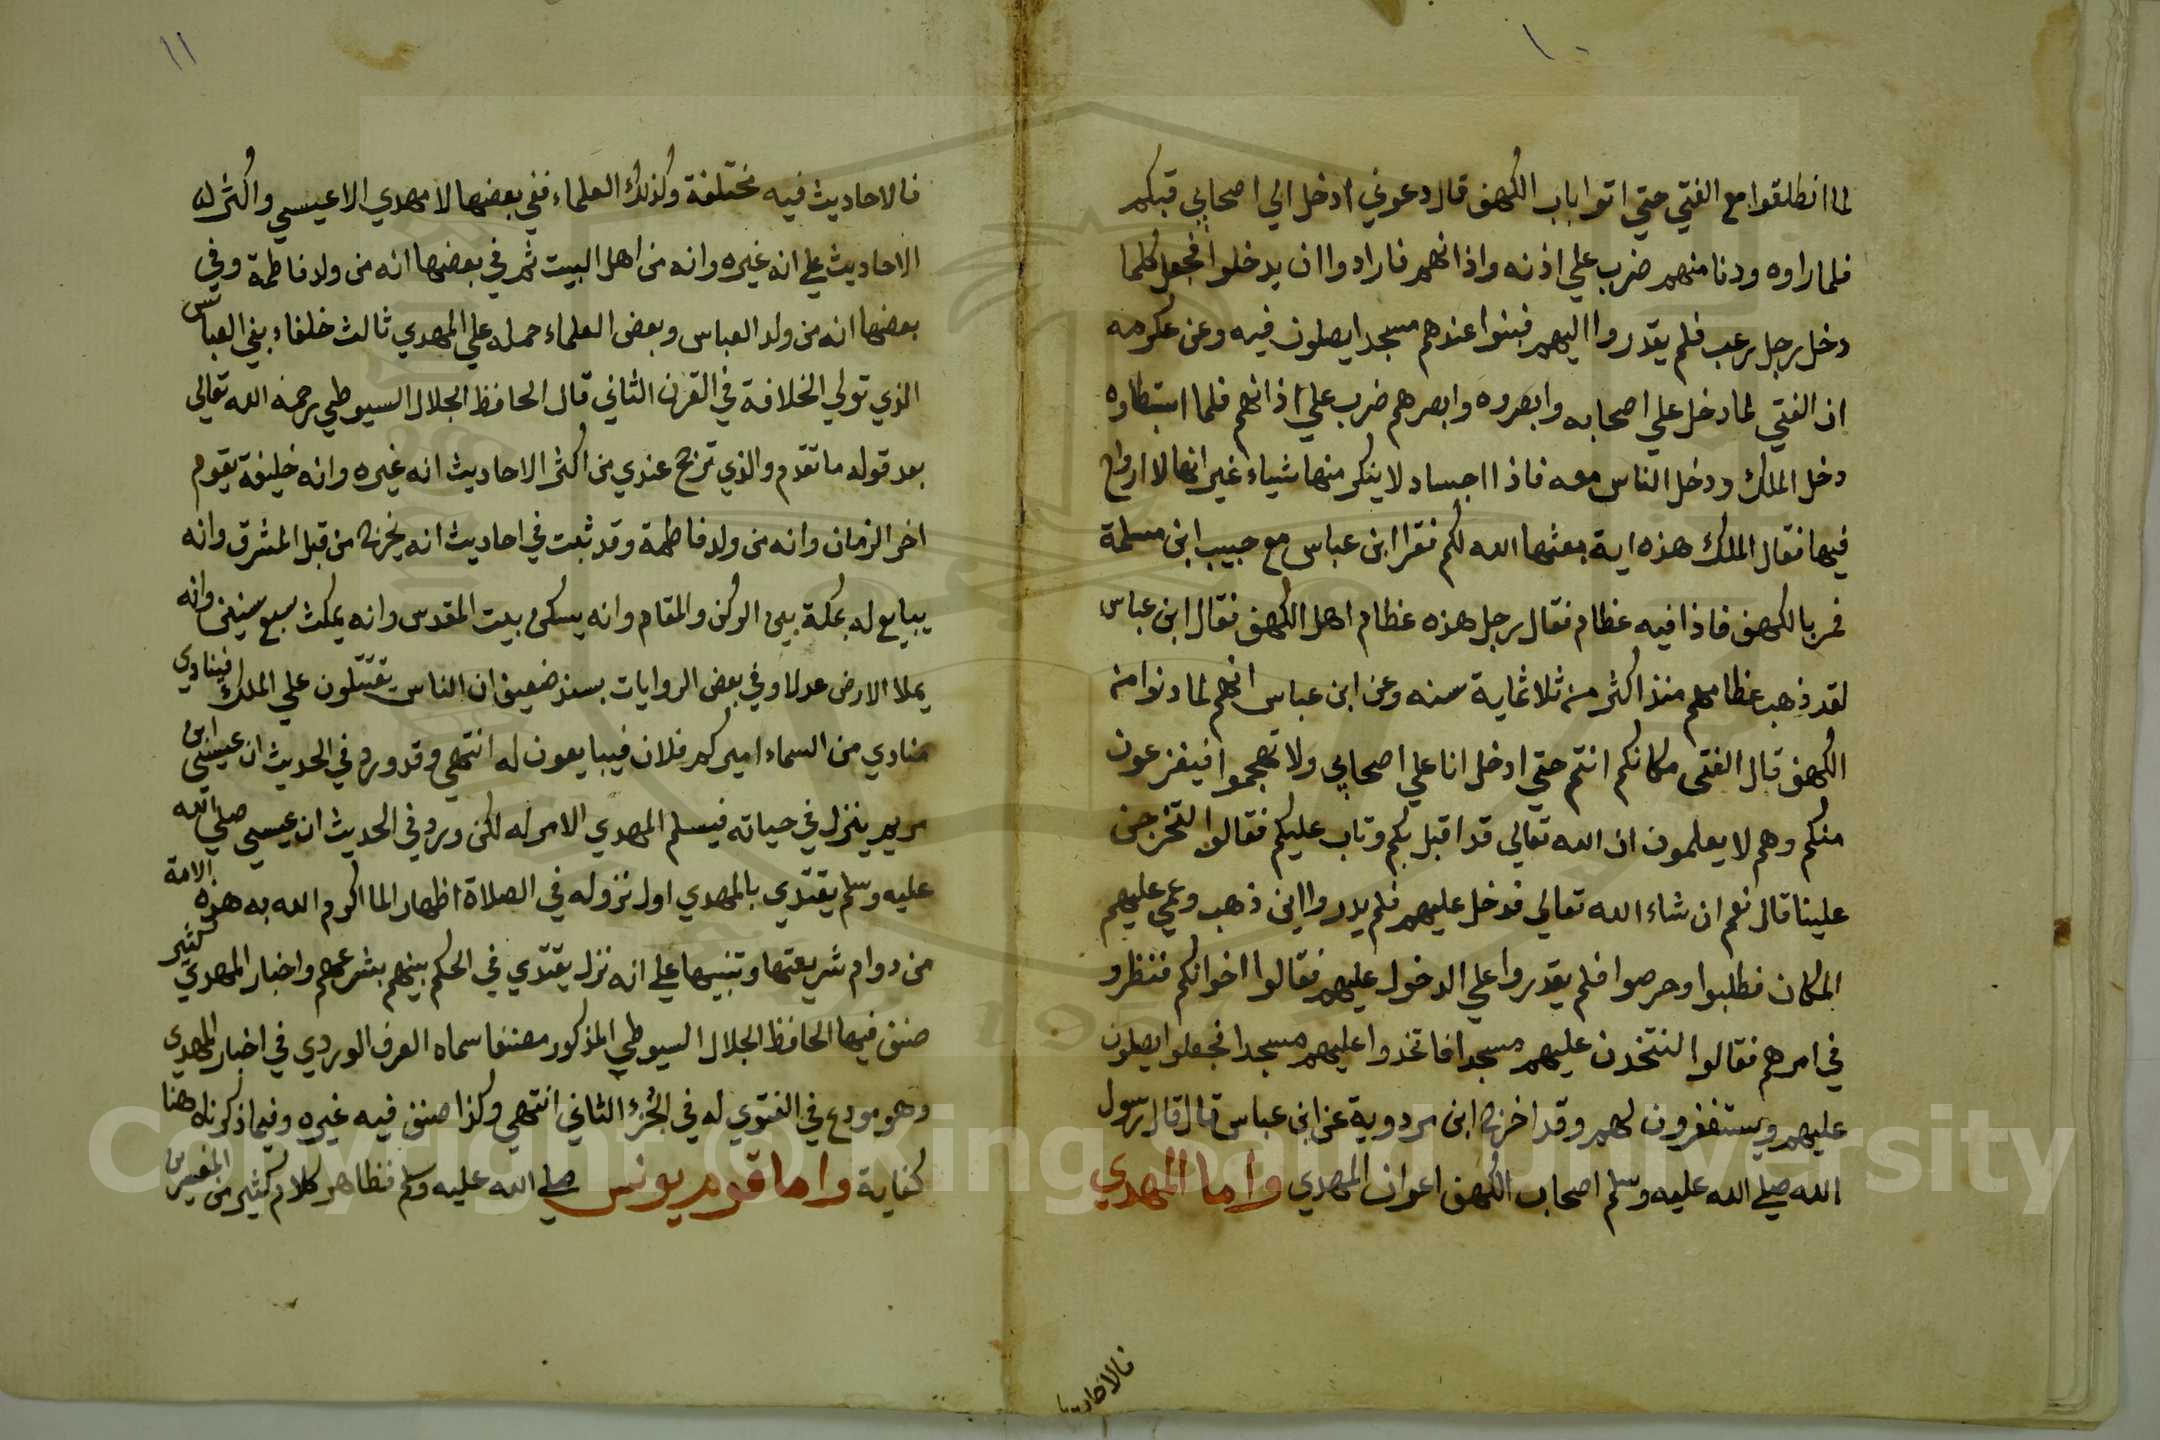 ١٠
لما انطلقوا مع الفتي حتي اتوا باب الكهف قال دعوني ادخل الي اصحابي قبلكم
فلما راوه ودنا منهم ضرب علي اذنه واذانهم فارادوا ان يدخلوا فجعل كلما
دخل رجل رعب فلم يقدروا اليهم فبنوا عندهم مسجدا يصلون فيه وعن عكرمه
ان الفتي لما دخل علي اصحابه وابصروه وابصرهم ضرب علي اذانهم فلما استبطاوه
دخل الملك ودخل الناس معه فاذا اجساد لا ينكر منها شياء غير انها لا ارواح
فيها فقال الملك هذه اية بعثها الله لكم فغزا ابن عباس مع حبيب ابن مسلمة
فمر بالكهف فاذا فيه عظام فقال رجل هذه عظام اهل الكهف فقال ابن عباس
لقد ذهب عظامهم منذ اكثر من ثلاثماية سنه وعن ابن عباس انهم لما دنوا من
الكهف قال الفتي مكانكم انتم حتي ادخل انا علي اصحابي ولا تهجموا فيفزعون
منكم وهم لا يعلمون ان الله تعالي قد اقبل بكم وتاب عليكم فقالوا لتخرجن
علينا قال نعم ان شاء الله تعالي فدخل عليهم فلم يدروا اين ذهب وعمي عليهم
المكان فطلبوا وحرصوا فلم يقدروا علي الدخول عليهم فقالوا اخوانكم فنظروا
في امرهم فقالوا لنتخذن عليهم مسجدا فاتخذوا عليهم مسجدا فجعلوا يصلون
عليهم ويستغفرون لهم وقد اخرج ابن مردوية عن ابن عباس قال قال رسول
الله صلي الله عليه وسلم اصحاب الكهف اعوان المهدي واما المهدي
فالاحاديث
١١
فالاحاديث فيه مختلفة وكذلك العلماء ففي بعضها لا مهدي الا عيسي واكثر
الاحاديث علي انه غيره وانه من اهل البيت ثم في بعضها انه من ولد فاطمة وفي
بعضها انه من ولد العباس وبعض العلماء حمله علي المهدي ثالث خلفاء بني العباس
الذي تولي الخلافة في القرن الثاني قال الحافظ الجلال السيوطي رحمه الله تعالي
بعد قوله ما تقدم والذي ترجح عندي من اكثر الاحاديث انه غيره وانه خليفة يقوم
اخر الزمان وانه من ولد فاطمة وقد ثبت في احاديث انه يخرج من قبل المشرق وانه
يبايع له بمكة بين الركن والمقام وانه يسكن بيت المقدس وانه يمكث سبع سنين وانه
يملا الارض عدلا وفي بعض الروايات بسند ضعيف ان الناس يقتتلون علي الملك فينادي
منادي من السماء اميركم فلان فيبايعون له انتهي وقد ورد في الحديث ان عيسي ابن
مريم ينزل في حياته فيسلم المهدي الامر له لكن ورد في الحديث ان عيسي صلي الله
عليه وسلم يقتدي بالمهدي اول نزوله في الصلاة اظهارا لما اكرم الله به هذه الامة
من دوام شريعتها وتنبيها علي انه نزل يقتدي في الحكم بينهم بشرعهم واخبار المهدي كثير
صنف فيها الحافظ الجلال السيوطي المذكور مصنفا سماه العرف الوردي في اخبار المهدي
وهو مودع في الفتوي له في الجزء الثاني انتهي وكذا صنف فيه غيره وفيما ذكرناه هنا
كفاية واما قوم يونس صلي الله عليه وسلم فظاهر كلام كثير من المفسرين
Copyright © King Saud University
1957